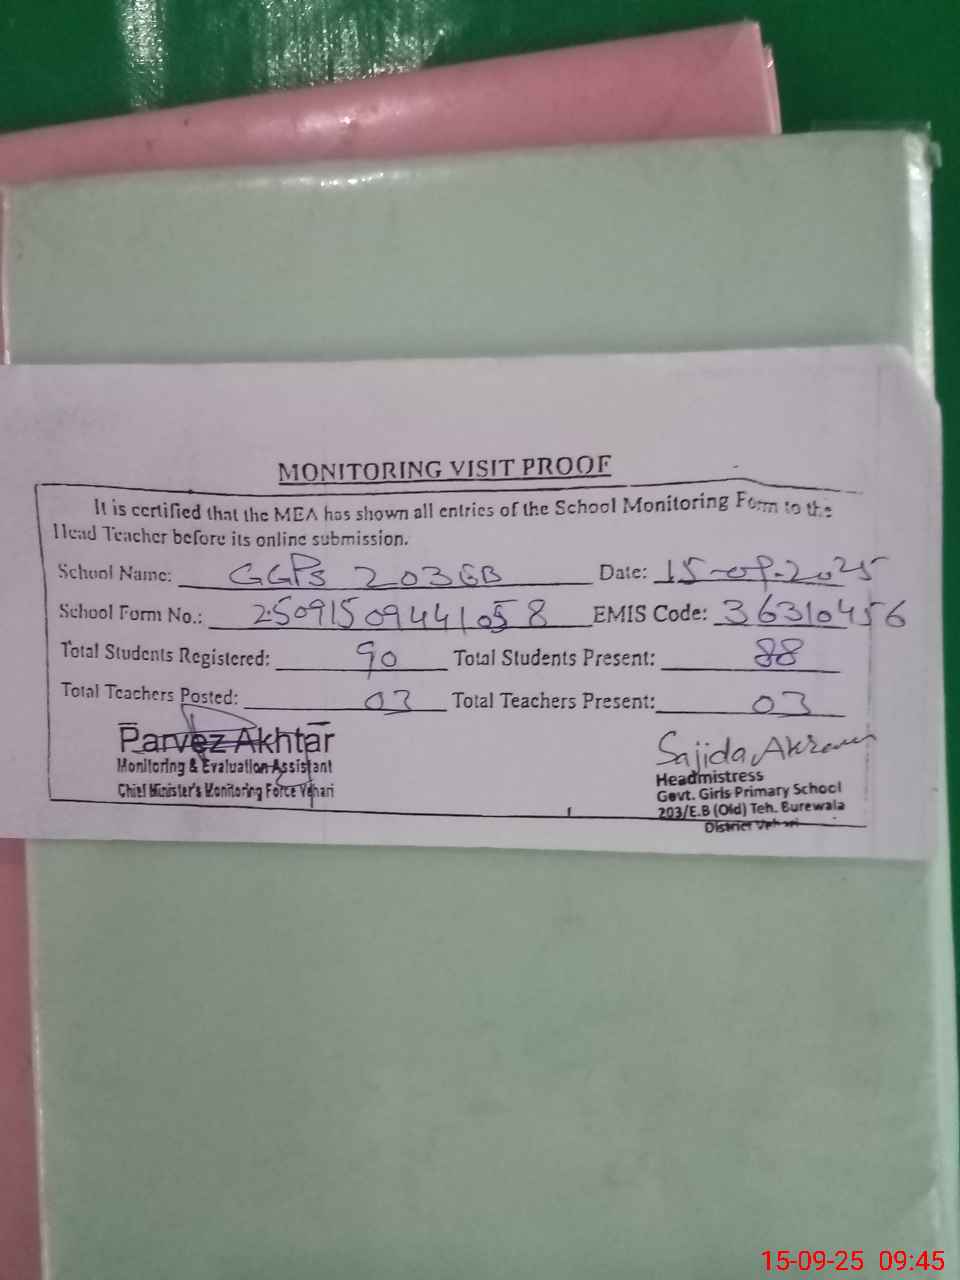 MONITORING VISIT PROOF
It is certified that the MEA has shown all entries of the School Monitoring Form to the
Head Teacher before its online submission.
School Name: GGPS 203 EB Date: 15-09-2025
School Form No.: 25091509441058 EMIS Code: 36310456
Total Students Registered: 90 Total Students Present: 88
Total Teachers Posted: 03 Total Teachers Present: 03
Parvez Akhtar
Monitoring & Evaluation Assistant
Chief Minister's Monitoring Force Vehari
Sajida Akram
Headmistress
Govt. Girls Primary School
203/E.B (Old) Teh. Burewala
District Vehari
15-09-25 09:45